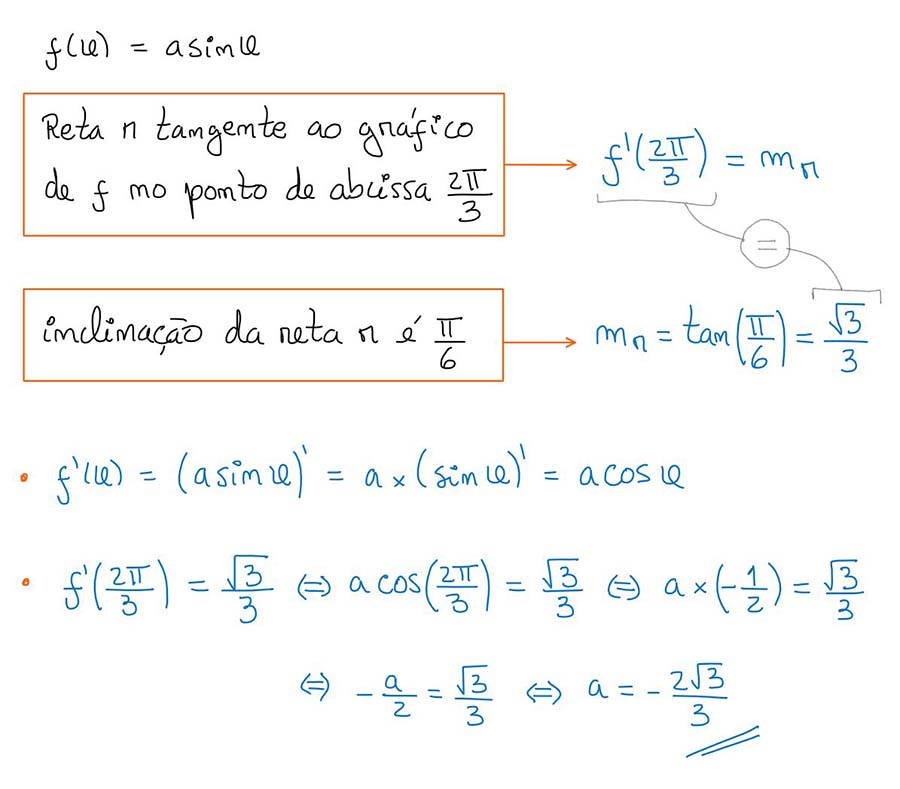 f(x) = a sin x
Reta r tangente ao gráfico
de f no ponto de abcissa 2π/3
f'(2π/3) = m_r
=
inclinação da reta r é π/6
m_r = tan(π/6) = √3/3
• f'(x) = (a sin x)' = a × (sin x)' = a cos x
• f'(2π/3) = √3/3 ⇔ a cos(2π/3) = √3/3 ⇔ a × (-1/2) = √3/3
⇔ -a/2 = √3/3 ⇔ a = -2√3/3